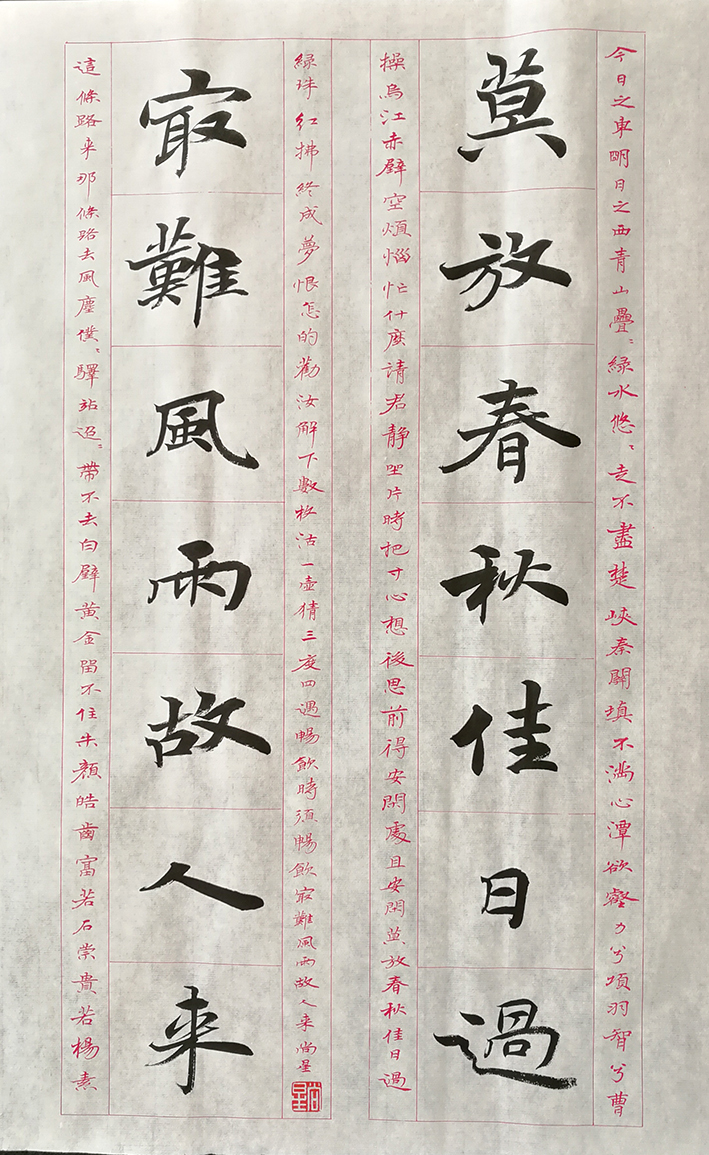 今日之東明日之西青山疊〻綠水悠〻走不盡楚峽秦關填不滿心潭欲壑力兮項羽智兮曹
莫放春秋佳日過
操烏江赤壁空煩惱忙什麼請君靜坐片時把寸心想後思前得安閑處且安閑莫放春秋佳日過
這條路来那條路去風塵僕〻驛站迢〻帶不去白璧黃金留不住朱顏皓齒富若石崇貴若楊素
最難風雨故人来
綠珠紅拂終成夢恨怎的勸汝解下數枚沽一壺猜三度四遇暢飲時須暢飲最難風雨故人来尚星
尚星